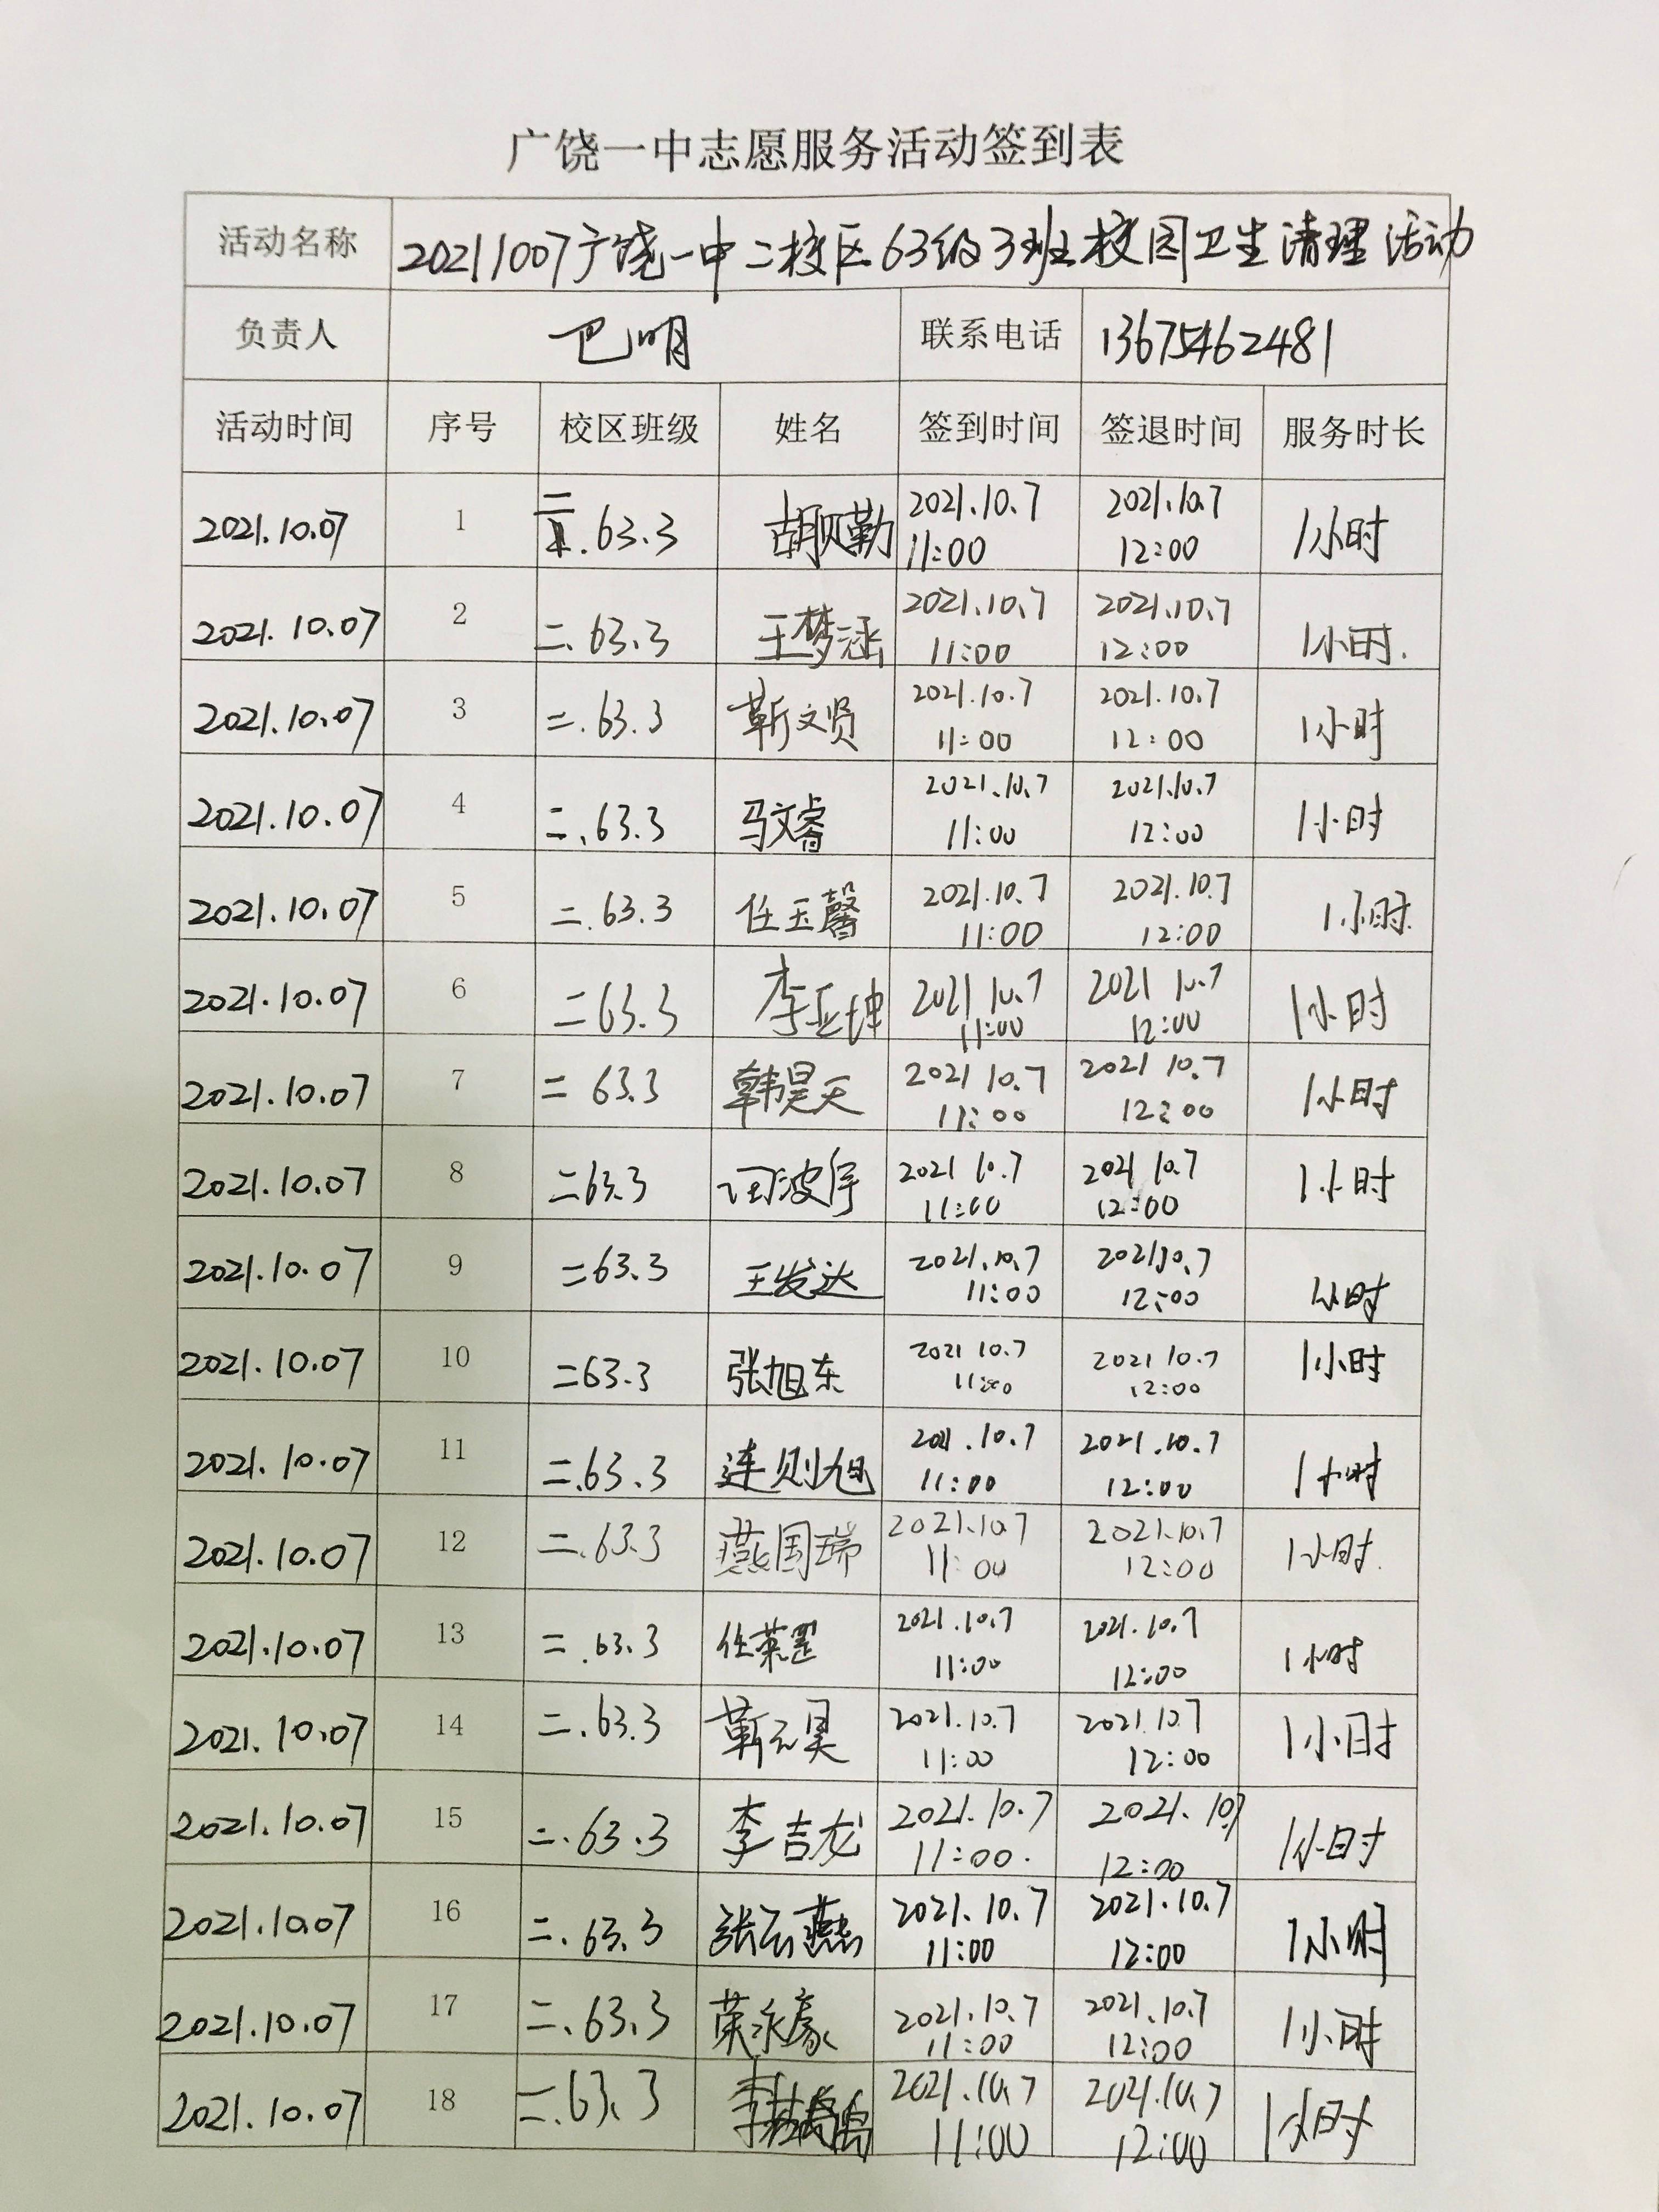 广饶一中志愿服务活动签到表
活动名称 20211007广饶一中二校区63级3班校园卫生清理活动
负责人 巴明 联系电话 13675462481
活动时间 序号 校区班级 姓名 签到时间 签退时间 服务时长
2021.10.07 1 二.63.3 胡贝勤 2021.10.7 11:00 2021.10.7 12:00 1小时
2021.10.07 2 二.63.3 王梦涵 2021.10.7 11:00 2021.10.7 12:00 1小时.
2021.10.07 3 二.63.3 靳文贤 2021.10.7 11:00 2021.10.7 12:00 1小时
2021.10.07 4 二.63.3 马文睿 2021.10.7 11:00 2021.10.7 12:00 1小时
2021.10.07 5 二.63.3 任玉馨 2021.10.7 11:00 2021.10.7 12:00 1小时.
2021.10.07 6 二63.3 李亚坤 2021 10.7 11:00 2021 10.7 12:00 1小时
2021.10.07 7 二 63.3 韩昊天 2021 10.7 11:00 2021 10.7 12:00 1小时
2021.10.07 8 二63.3 波宇 2021 10.7 11:00 2021 10.7 12:00 1小时
2021.10.07 9 二63.3 王发达 2021.10.7 11:00 2021.10.7 12:00 1小时
2021.10.07 10 二63.3 张旭东 2021 10.7 11:00 2021 10.7 12:00 1小时
2021.10.07 11 二.63.3 连则旭 2021.10.7 11:00 2021.10.7 12:00 1小时
2021.10.07 12 二.63.3 燕国瑞 2021.10.7 11:00 2021.10.7 12:00 1小时.
2021.10.07 13 二.63.3 任莱罡 2021.10.7 11:00 2021.10.7 12:00 1小时
2021.10.07 14 二.63.3 靳元昊 2021.10.7 11:00 2021.10.7 12:00 1小时
2021.10.07 15 二.63.3 李吉龙 2021.10.7 11:00. 2021.10.7 12:00 1小时
2021.10.07 16 二.63.3 张云燕 2021.10.7 11:00 2021.10.7 12:00 1小时
2021.10.07 17 二.63.3 荣永豪 2021.10.7 11:00 2021.10.7 12:00 1小时
2021.10.07 18 二.63.3 2021.10.7 11:00 2021.10.7 12:00 1小时